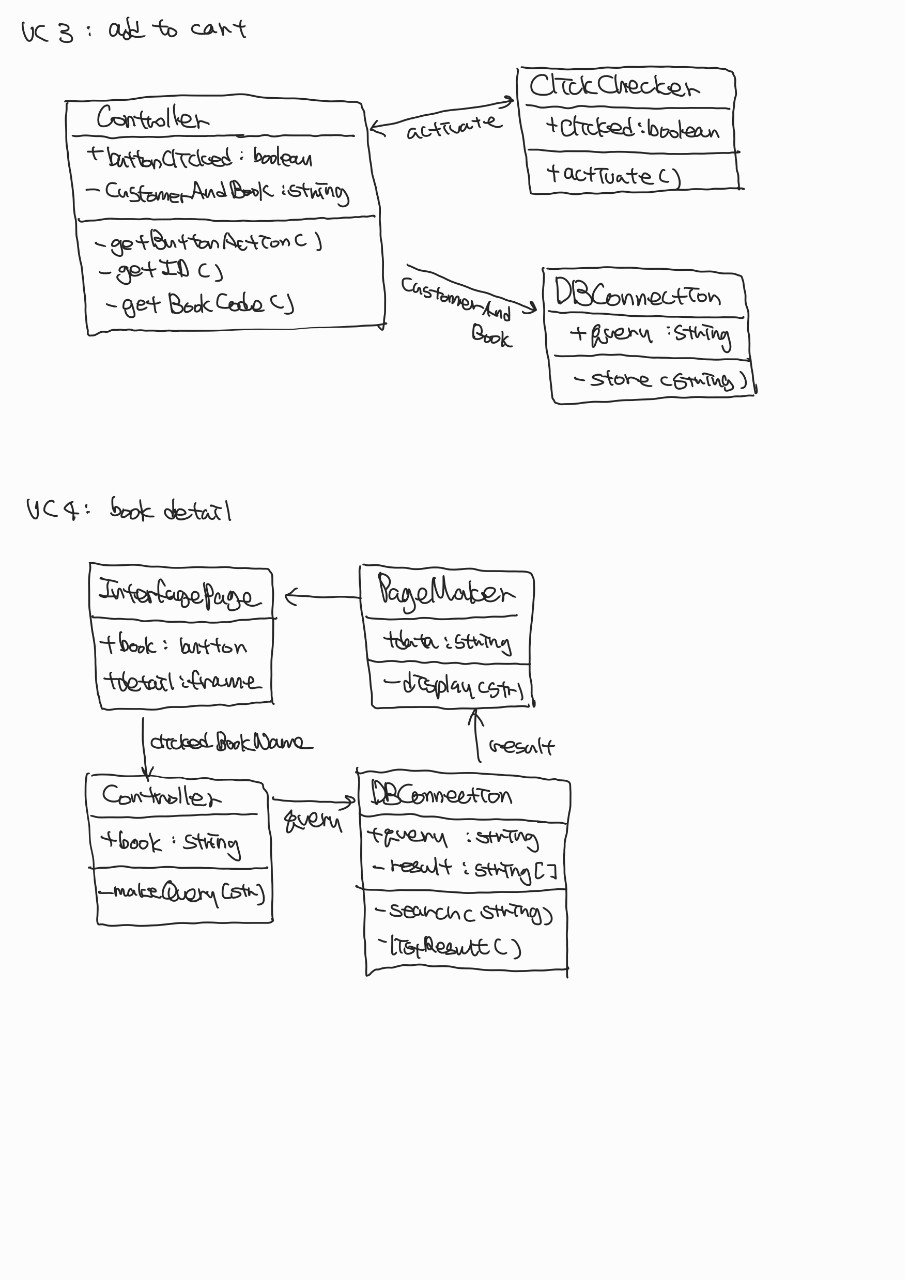 UC 3 : add to cart
Controller
+ buttonClicked : boolean
- CustomerAndBook : string
- getButtonAction ( )
- getID ( )
- getBookCode ( )
actuate
ClickChecker
+ clicked : boolean
+ actuate ( )
CustomerAnd
Book
DBConnection
+ query : string
- store (string)
UC 4 : book detail
InterfagePage
+ book : button
+ detail : frame
PageMaker
+ data : string
- display (str)
clickedBookName
result
Controller
+ book : string
- makeQuery (str)
query
DBConnection
+ query : string
- result : string [ ]
- search ( string )
- listResult ( )